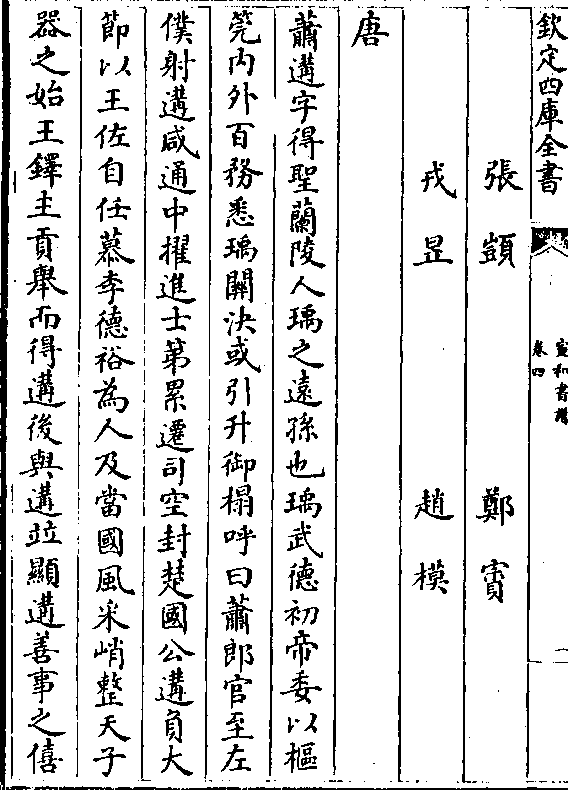 欽定四庫全書
宣和書譜
卷四
張顗 鄭賓
戎昱 趙模
唐
蕭遘字得聖蘭陵人瑀之遠孫也瑀武德初帝委以樞
筦内外百務悉瑀關決或引升御榻呼曰蕭郎官至左
僕射遘咸通中擢進士第累遷司空封楚國公遘負大
節以王佐自任慕李德裕為人及當國風采峭整天子
器之始王鐸主貢舉而得遘後與遘竝顯遘善事之僖